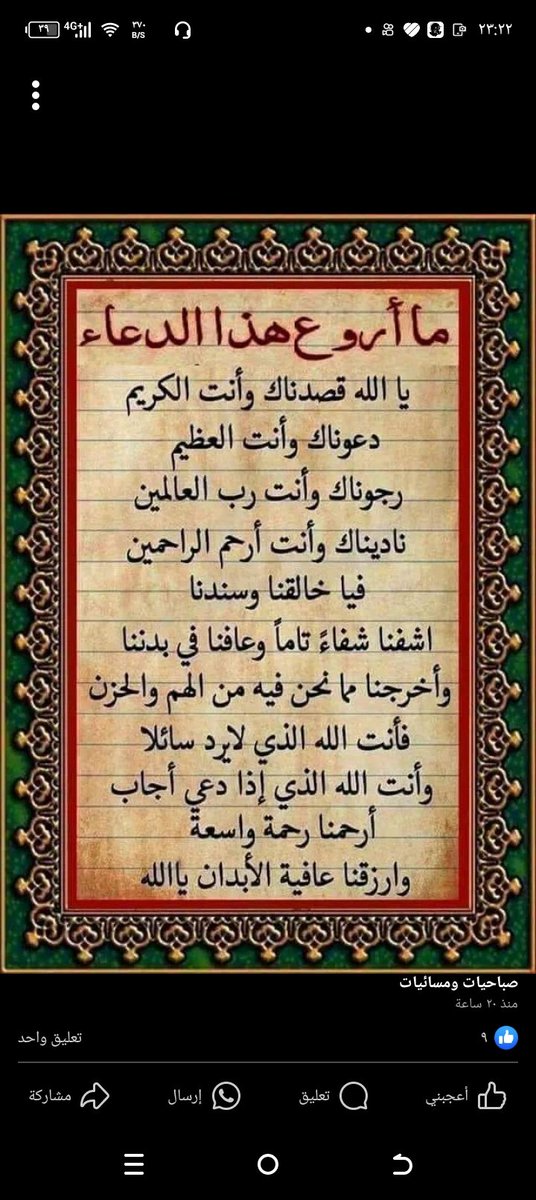 ٣٩ 4G+ ٣٧٠ B/S ٢٣:٢٢
ما أروع هذا الدعاء
يا الله قصدناك وأنت الكريم
دعوناك وأنت العظيم
رجوناك وأنت رب العالمين
ناديناك وأنت أرحم الراحمين
فيا خالقنا وسندنا
اشفنا شفاءً تاماً وعافنا في بدننا
وأخرجنا مما نحن فيه من الهم والحزن
فأنت الله الذي لايرد سائلا
وأنت الله الذي إذا دعي أجاب
أرحمنا رحمة واسعة
وارزقنا عافية الأبدان ياالله
صباحيات ومسائيات
منذ ٢٠ ساعة
٩ تعليق واحد
أعجبني تعليق إرسال مشاركة